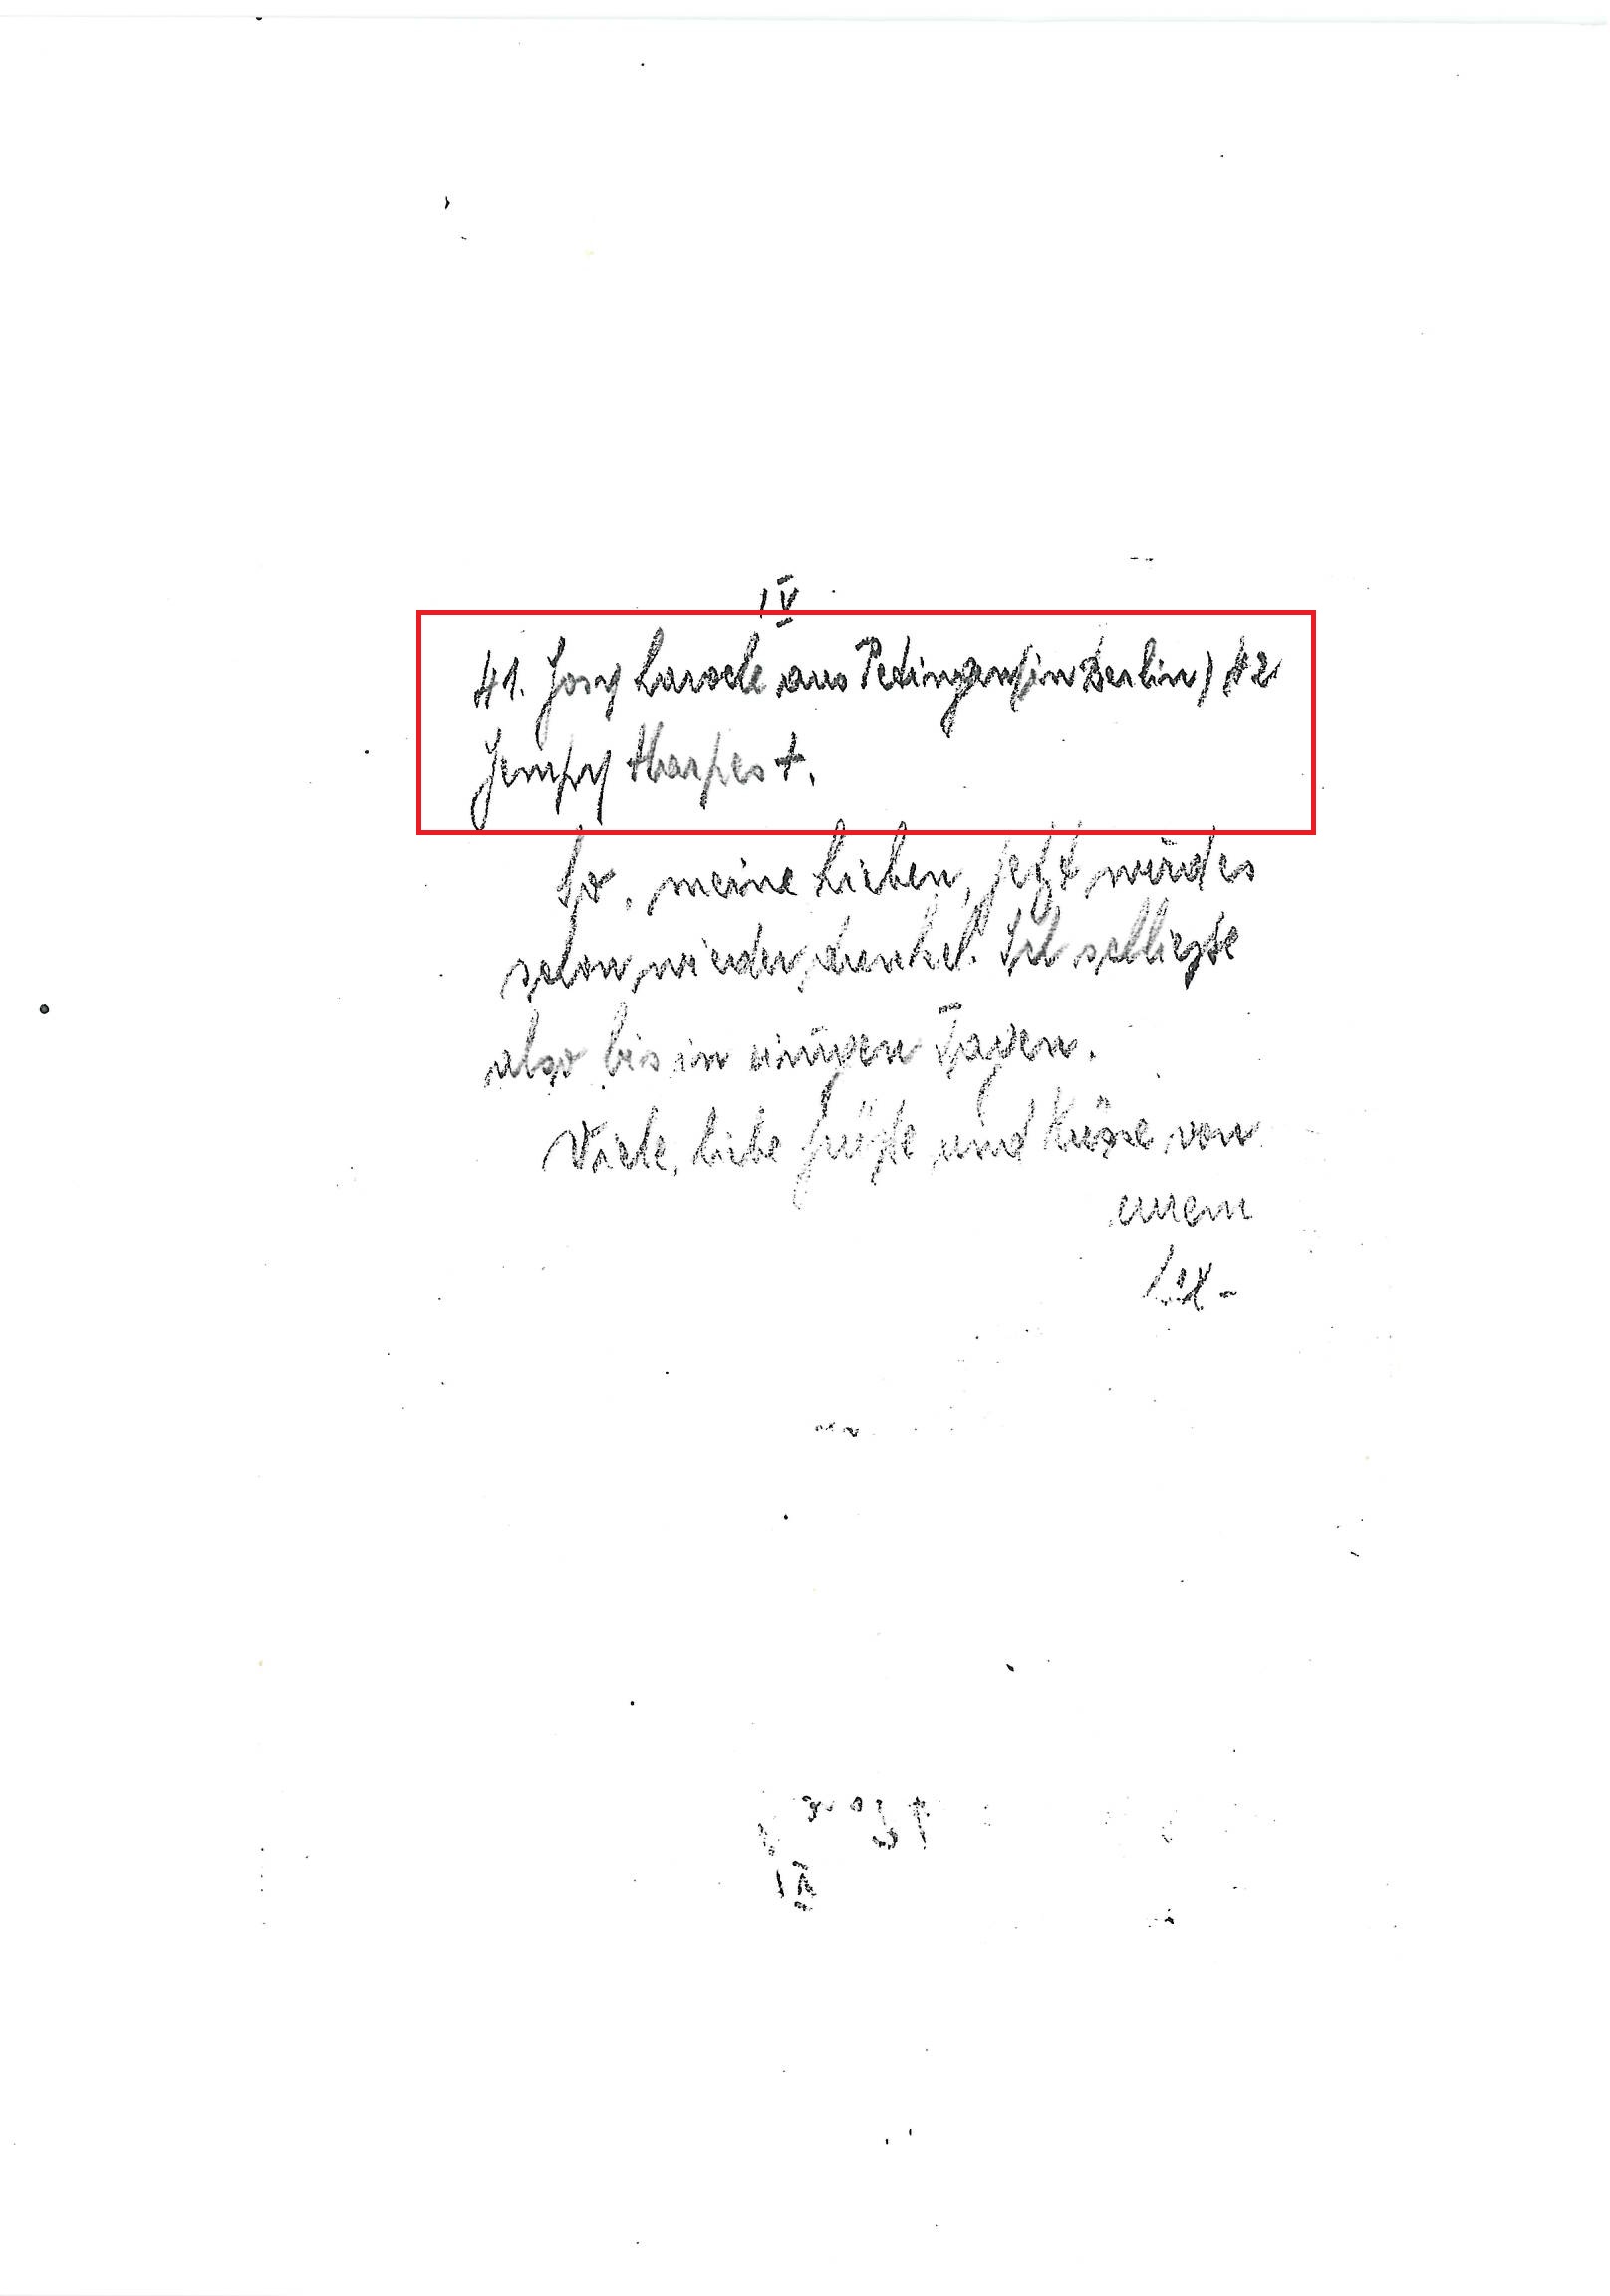 IV
41. Josy Laroch aus Petingen (in Berlin) 42
Jempy Harpes +.
So, meine Lieben, jetzt wird es
schon wieder dunkel. Ich schließe
also bis in einigen Tagen.
Viele, liebe Grüße und Küsse von
eurem
IV